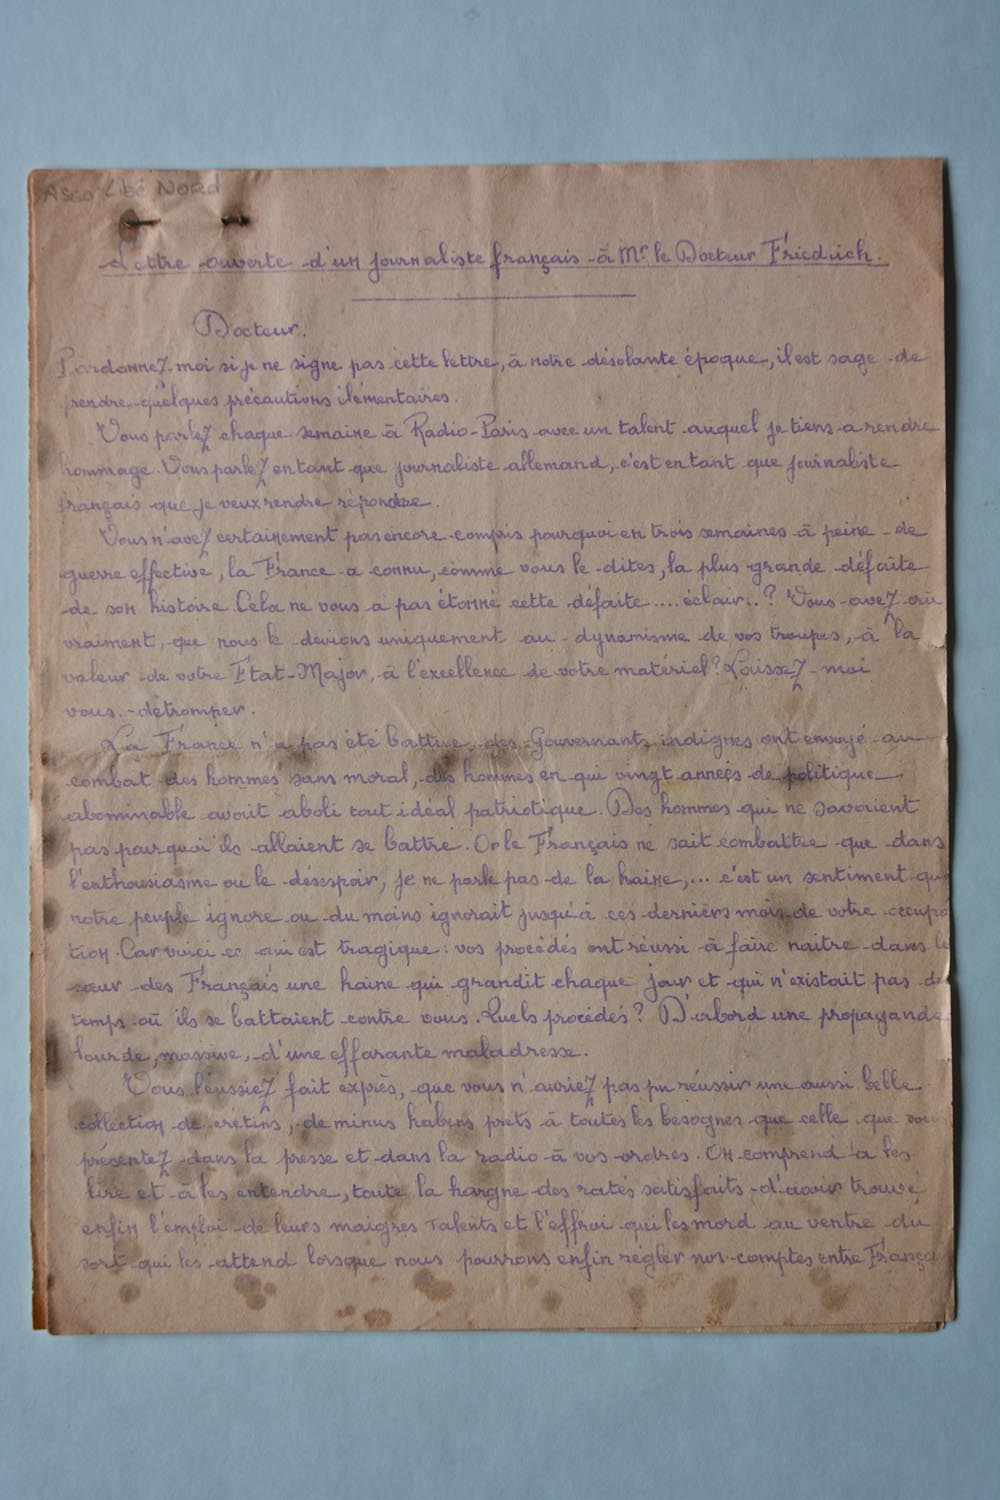 Asso Libé NORD
Lettre ouverte d'un journaliste français à Mr le Docteur Friedrich.
Docteur.
Pardonnez moi si je ne signe pas cette lettre, à notre désolante époque, il est sage de
prendre quelques précautions élémentaires.
Vous parlez chaque semaine à Radio-Paris avec un talent auquel je tiens a rendre
hommage. Vous parlez en tant que journaliste allemand, c'est en tant que journaliste
français que je veux rendre répondre.
Vous n'avez certainement pas encore compris pourquoi en trois semaines à peine de
guerre effective, la France a connu, comme vous le dites, la plus grande défaite
de son histoire. Cela ne vous a pas étonné cette défaite.... éclair..? Vous avez cru
vraiment, que nous le devions uniquement au dynamisme de vos troupes, à la
valeur de votre Etat-Major, à l'excellence de votre matériel? Laissez-moi
vous détromper.
La France n'a pas été battue, des Gouvernants indignes ont envoyé au
combat des hommes sans moral, des hommes en qui vingt années de politique
abominable avait aboli tout idéal patriotique. Des hommes qui ne savaient
pas pourquoi ils allaient se battre. Or le Français ne sait combattre que dans
l'enthousiasme ou le désespoir, je ne parle pas de la haine,... c'est un sentiment que
notre peuple ignore ou du moins ignorait jusqu'à ces derniers mois de votre occupa
tion. Car voici ce qui est tragique: vos procédés ont réussi à faire naitre dans le
cœur des Français une haine qui grandit chaque jour et qui n'existait pas du
temps où ils se battaient contre vous. Quels procédés? D'abord une propagande
lourde, massive, d'une effarante maladresse.
Vous l'eussiez fait exprès, que vous n'auriez pas pu réussir une aussi belle
collection de crétins, de minus habens prêts à toutes les besognes que celle que vous
présentez dans la presse et dans la radio à vos ordres. On comprend à les
lire et à les entendre, toute la hargne des ratés satisfaits d'avoir trouvé
enfin l'emploi de leurs maigres talents et l'effroi qui les mord au ventre du
sort qui les attend lorsque nous pourrons enfin régler nos comptes entre França